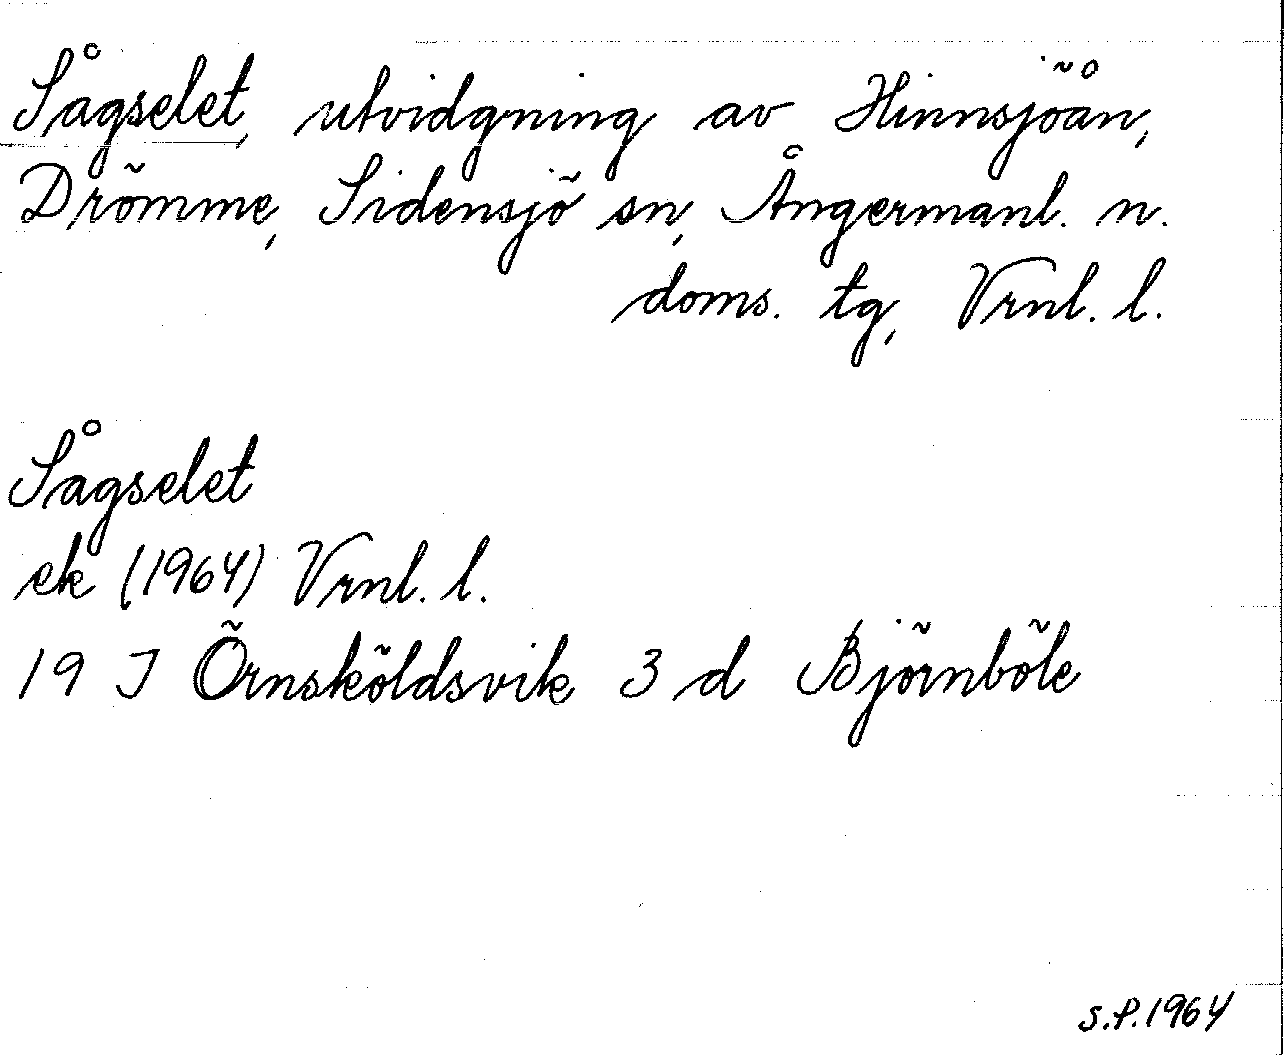 Sågselet, utvidgning av Hinnsjöån,
Drömme, Sidensjö sn, Ångermanl. n.
doms. tg, Vrnl. l.
Sågselet
ek (1964) Vrnl. l.
19 J Örnsköldsvik 3 d Björnböle
S.P.1964